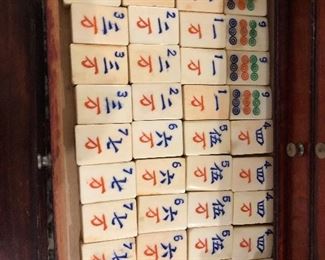 3 三万 2 二万 1 一万 9
3 三万 2 二万 1 一万 9
3 三万 2 二万 1 一万 9
7 七万 6 六万 5 伍万 4 四万
7 七万 6 六万 5 伍万 4 四万
7 七万 6 六万 5 伍万 4 四万
7 七万 6 六万 5 伍万 4 四万